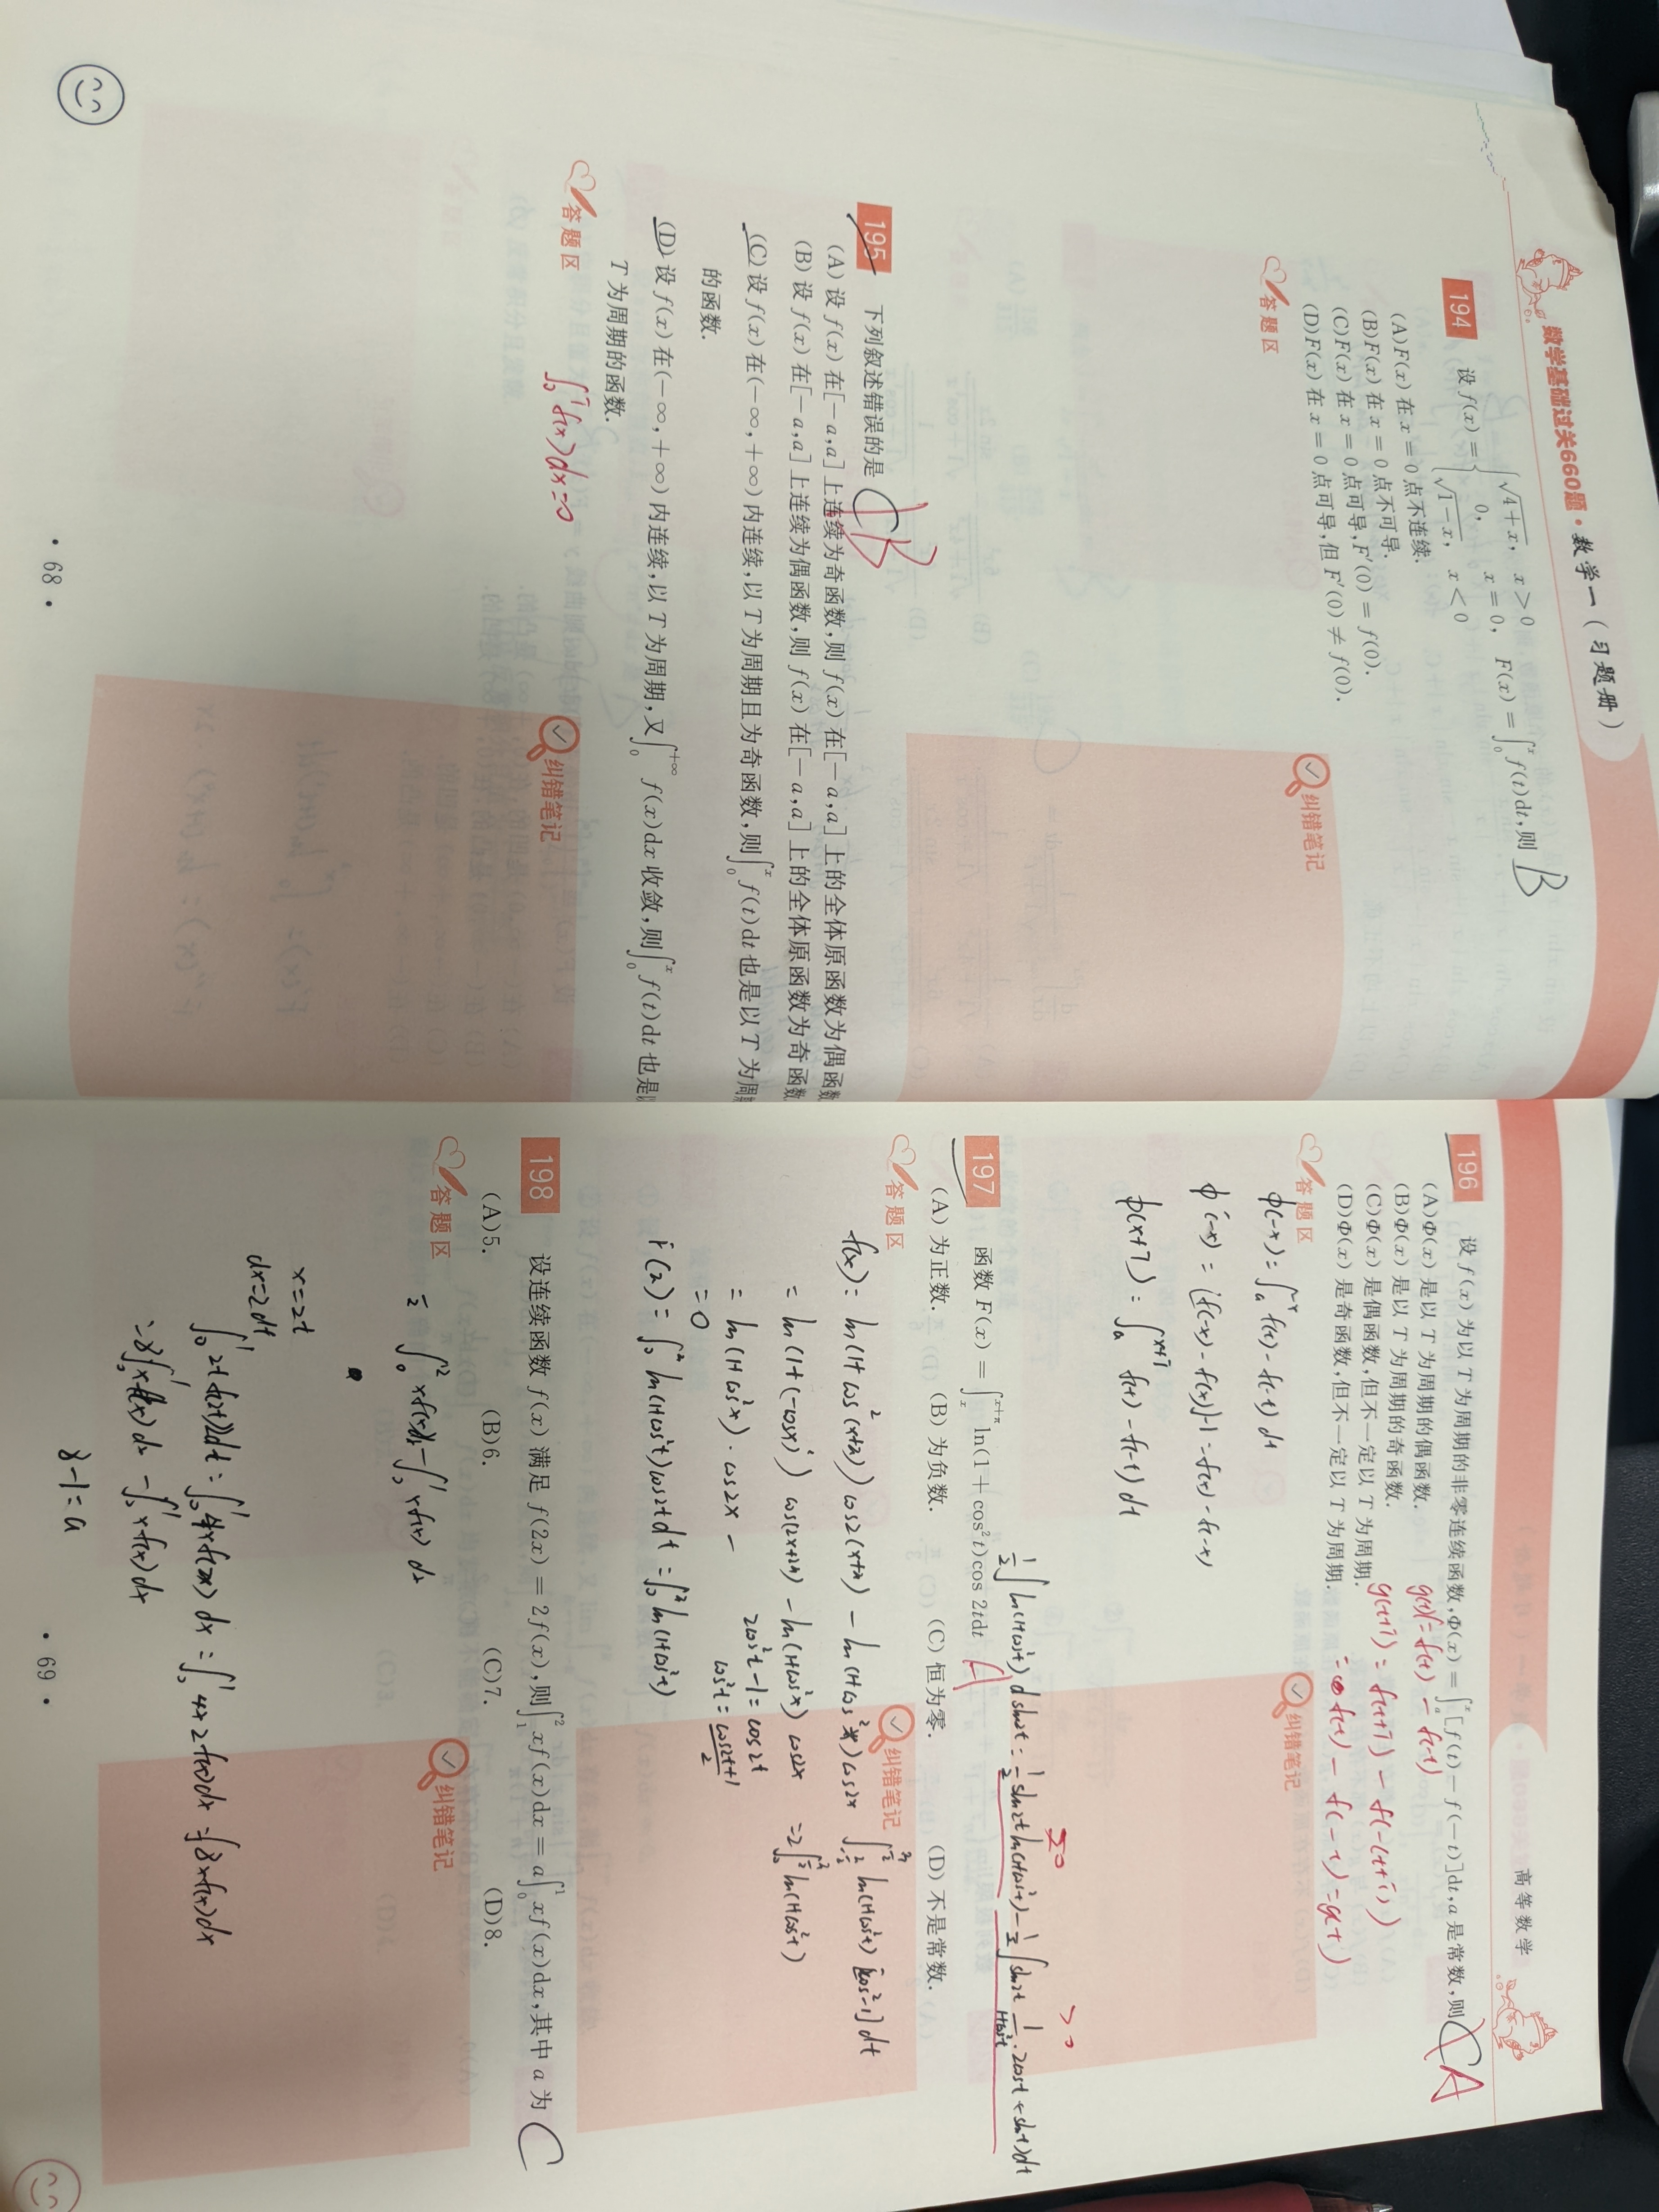 数学基础过关660题·数学一(习题册)
194 设 f(x) = { √(4+x), x > 0
0, x = 0,
√(1-x), x < 0
F(x) = ∫₀ˣ f(t)dt,则 B
(A)F(x) 在 x = 0 点不连续.
(B)F(x) 在 x = 0 点不可导.
(C)F(x) 在 x = 0 点可导,F′(0) = f(0).
(D)F(x) 在 x = 0 点可导,但 F′(0) ≠ f(0).
答题区
纠错笔记
195 下列叙述错误的是 C B
(A) 设 f(x) 在[-a,a] 上连续为奇函数,则 f(x) 在[-a,a] 上的全体原函数为偶函数
(B) 设 f(x) 在[-a,a] 上连续为偶函数,则 f(x) 在[-a,a] 上的全体原函数为奇函数
(C) 设 f(x) 在(-∞,+∞) 内连续,以 T 为周期且为奇函数,则∫₀ˣ f(t)dt 也是以 T 为周
的函数.
(D) 设 f(x) 在(-∞,+∞) 内连续,以 T 为周期,又∫₀^{+∞} f(x)dx 收敛,则∫₀ˣ f(t)dt 也是
T 为周期的函数.
∫₀ᵀ f(x)dx=0
答题区
纠错笔记
· 68 ·
高等数学
196 设 f(x) 为以 T 为周期的非零连续函数,Φ(x) = ∫ₐˣ[f(t) - f(-t)]dt,a 是常数,则 C A
(A)Φ(x) 是以 T 为周期的偶函数.
(B)Φ(x) 是以 T 为周期的奇函数.
(C)Φ(x) 是偶函数,但不一定以 T 为周期.
(D)Φ(x) 是奇函数,但不一定以 T 为周期.
g(t)=f(t) - f(-t)
g(t+T) = f(t+T) - f(-(t+T))
= f(t) - f(-t) = g(t)
答题区
纠错笔记
Φ(-x) = ∫ₐ⁻ˣ f(t) - f(-t) dt
Φ′(-x) = [f(-x) - f(x)]·-1 = f(x) - f(-x)
Φ(x+T) = ∫ₐ^{x+T} f(t) - f(-t) dt
½∫ln(1+cos²t) dsin2t = ½sin2t ln(1+cos²t) - ½∫sin2t 1/(1+cos²t)·2cost·(-sint)dt
=0
>0
197 函数 F(x) = ∫ₓ^{x+π} ln(1+cos²t)cos 2tdt A
(A) 为正数. (B) 为负数. (C) 恒为零. (D) 不是常数.
答题区
纠错笔记
f(x) = ln(1+cos²(x+π)) cos2(x+π) - ln(1+cos²x) cos2x
= ln(1+(-cosx)²) cos(2x+2π) - ln(1+cos²x) cos2x
= ln(1+cos²x)·cos2x -
=0
2cos²t-1=cos2t
cos²t = (cos2t+1)/2
198 设连续函数 f(x) 满足 f(2x) = 2f(x),则∫₁² xf(x)dx = a∫₀¹ xf(x)dx,其中 a 为 C
(A)5. (B)6. (C)7. (D)8.
答题区
纠错笔记
= ∫₀² xf(x)dx - ∫₀¹ xf(x) dx
x=2t
dx=2dt
∫₀¹ 2t f(2t)2dt = ∫₀¹ 4x f(2x) dx = ∫₀¹ 4x 2f(x)dx = ∫8xf(x)dx
=8∫₀¹ xf(x) dx - ∫₀¹ xf(x)dx
8-1=a
· 69 ·